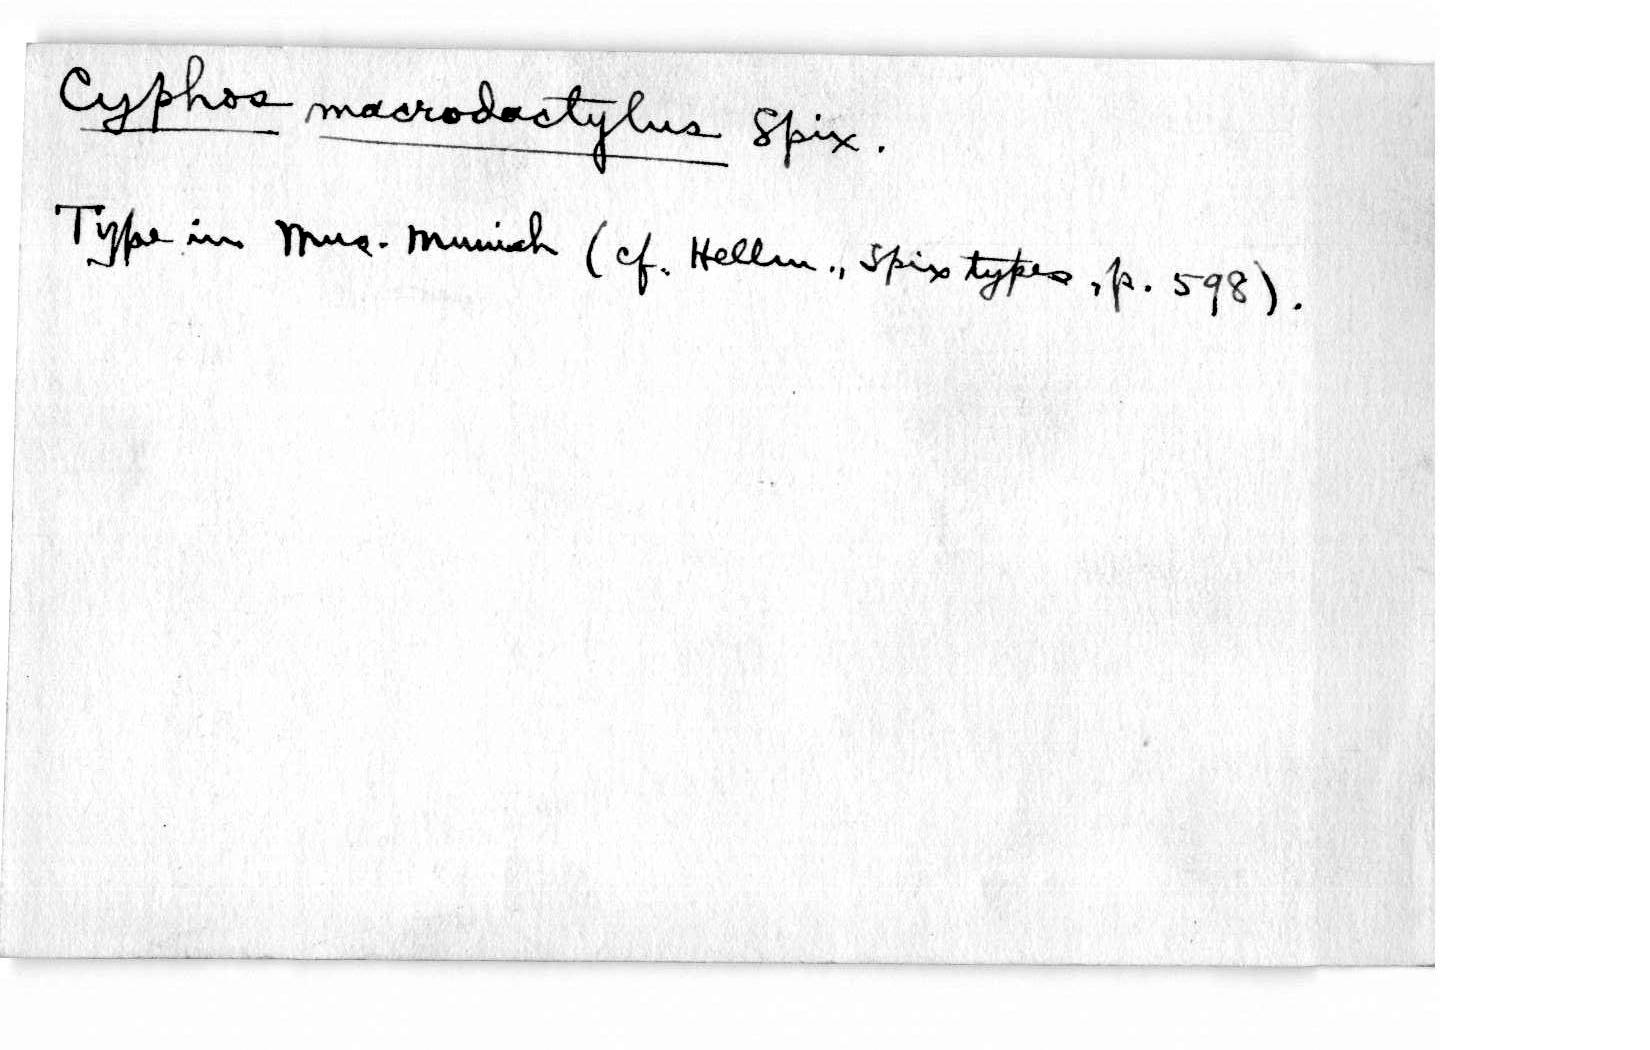 Cyphos macrodactylus Spix.
Type in Mus. Munich (cf. Hellm., Spix types, p. 598).